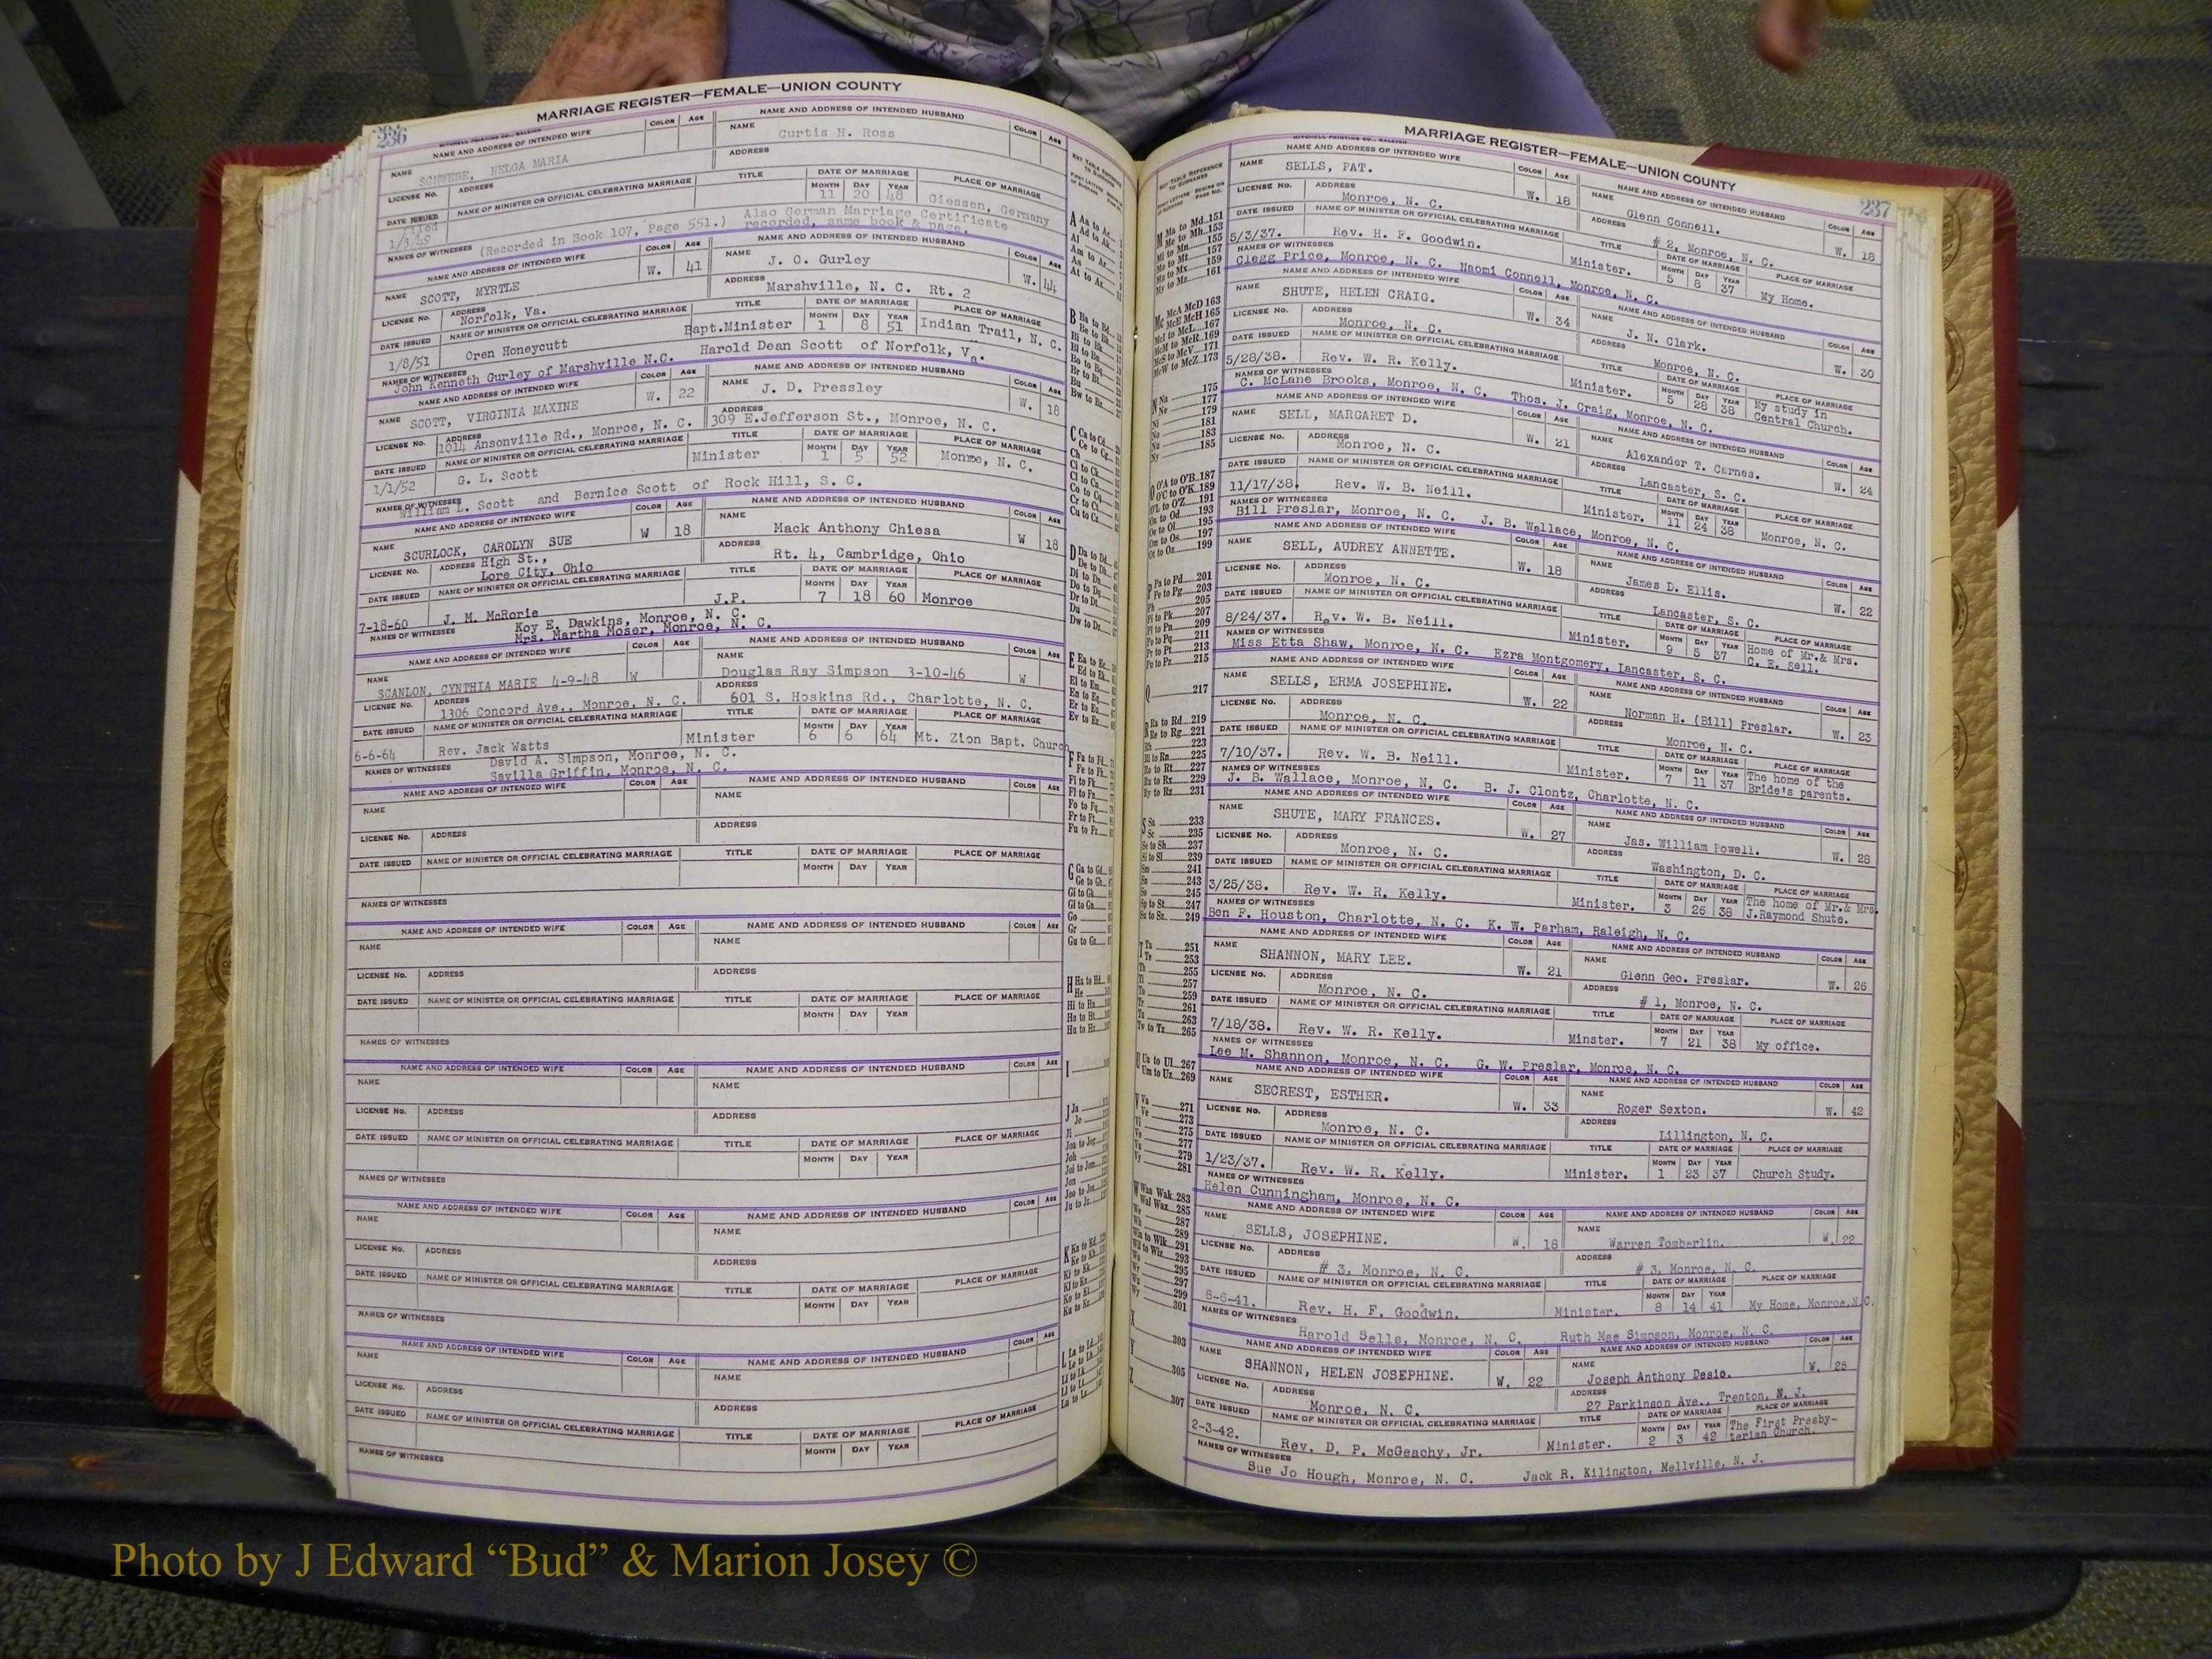 236
MARRIAGE REGISTER—FEMALE—UNION COUNTY
MITCHELL PRINTING CO., RALEIGH
NAME AND ADDRESS OF INTENDED WIFE COLOR AGE NAME AND ADDRESS OF INTENDED HUSBAND COLOR AGE
NAME SCHWEBE, HELGA MARIA NAME Curtis H. Ross
LICENSE No. ADDRESS ADDRESS
DATE ISSUED NAME OF MINISTER OR OFFICIAL CELEBRATING MARRIAGE TITLE DATE OF MARRIAGE PLACE OF MARRIAGE
MONTH DAY YEAR
filed 1/3/49 11 20 48 Giessen, Germany
NAMES OF WITNESSES (Recorded in Book 107, Page 551.) Also German Marriage Certificate
recorded, same book & page.
NAME AND ADDRESS OF INTENDED WIFE COLOR AGE NAME AND ADDRESS OF INTENDED HUSBAND COLOR AGE
NAME SCOTT, MYRTLE W. 41 NAME J. O. Gurley W. 44
LICENSE No. ADDRESS Norfolk, Va. ADDRESS Marshville, N. C. Rt. 2
DATE ISSUED NAME OF MINISTER OR OFFICIAL CELEBRATING MARRIAGE TITLE DATE OF MARRIAGE PLACE OF MARRIAGE
MONTH DAY YEAR
1/8/51 Oren Honeycutt Bapt.Minister 1 8 51 Indian Trail, N. C.
NAMES OF WITNESSES John Kenneth Gurley of Marshville N.C. Harold Dean Scott of Norfolk, Va.
NAME AND ADDRESS OF INTENDED WIFE COLOR AGE NAME AND ADDRESS OF INTENDED HUSBAND COLOR AGE
NAME SCOTT, VIRGINIA MAXINE W. 22 NAME J. D. Pressley W. 18
LICENSE No. ADDRESS 1014 Ansonville Rd., Monroe, N. C. ADDRESS 309 E.Jefferson St., Monroe, N. C.
DATE ISSUED NAME OF MINISTER OR OFFICIAL CELEBRATING MARRIAGE TITLE DATE OF MARRIAGE PLACE OF MARRIAGE
MONTH DAY YEAR
1/1/52 G. L. Scott Minister 1 5 52 Monroe, N. C.
NAMES OF WITNESSES William L. Scott and Bernice Scott of Rock Hill, S. C.
NAME AND ADDRESS OF INTENDED WIFE COLOR AGE NAME AND ADDRESS OF INTENDED HUSBAND COLOR AGE
NAME SCURLOCK, CAROLYN SUE W 18 NAME Mack Anthony Chiesa W 18
LICENSE No. ADDRESS High St.,
Lore City, Ohio ADDRESS Rt. 4, Cambridge, Ohio
DATE ISSUED NAME OF MINISTER OR OFFICIAL CELEBRATING MARRIAGE TITLE DATE OF MARRIAGE PLACE OF MARRIAGE
MONTH DAY YEAR
7-18-60 J. M. McRorie J.P. 7 18 60 Monroe
NAMES OF WITNESSES Koy E. Dawkins, Monroe, N. C.
Mrs. Martha Moser, Monroe, N. C.
NAME AND ADDRESS OF INTENDED WIFE COLOR AGE NAME AND ADDRESS OF INTENDED HUSBAND COLOR AGE
NAME SCANLON, CYNTHIA MARIE 4-9-48 W NAME Douglas Ray Simpson 3-10-46 W
LICENSE No. ADDRESS 1306 Concord Ave., Monroe, N. C. ADDRESS 601 S. Hoskins Rd., Charlotte, N. C.
DATE ISSUED NAME OF MINISTER OR OFFICIAL CELEBRATING MARRIAGE TITLE DATE OF MARRIAGE PLACE OF MARRIAGE
MONTH DAY YEAR
6-6-64 Rev. Jack Watts Minister 6 6 64 Mt. Zion Bapt. Church
NAMES OF WITNESSES David A. Simpson, Monroe, N. C.
Savilla Griffin, Monroe, N. C.
NAME AND ADDRESS OF INTENDED WIFE COLOR AGE NAME AND ADDRESS OF INTENDED HUSBAND COLOR AGE
NAME NAME
LICENSE No. ADDRESS ADDRESS
DATE ISSUED NAME OF MINISTER OR OFFICIAL CELEBRATING MARRIAGE TITLE DATE OF MARRIAGE PLACE OF MARRIAGE
MONTH DAY YEAR
NAMES OF WITNESSES
NAME AND ADDRESS OF INTENDED WIFE COLOR AGE NAME AND ADDRESS OF INTENDED HUSBAND COLOR AGE
NAME NAME
LICENSE No. ADDRESS ADDRESS
DATE ISSUED NAME OF MINISTER OR OFFICIAL CELEBRATING MARRIAGE TITLE DATE OF MARRIAGE PLACE OF MARRIAGE
MONTH DAY YEAR
NAMES OF WITNESSES
NAME AND ADDRESS OF INTENDED WIFE COLOR AGE NAME AND ADDRESS OF INTENDED HUSBAND COLOR AGE
NAME NAME
LICENSE No. ADDRESS ADDRESS
DATE ISSUED NAME OF MINISTER OR OFFICIAL CELEBRATING MARRIAGE TITLE DATE OF MARRIAGE PLACE OF MARRIAGE
MONTH DAY YEAR
NAMES OF WITNESSES
NAME AND ADDRESS OF INTENDED WIFE COLOR AGE NAME AND ADDRESS OF INTENDED HUSBAND COLOR AGE
NAME NAME
LICENSE No. ADDRESS ADDRESS
DATE ISSUED NAME OF MINISTER OR OFFICIAL CELEBRATING MARRIAGE TITLE DATE OF MARRIAGE PLACE OF MARRIAGE
MONTH DAY YEAR
NAMES OF WITNESSES
NAME AND ADDRESS OF INTENDED WIFE COLOR AGE NAME AND ADDRESS OF INTENDED HUSBAND COLOR AGE
NAME NAME
LICENSE No. ADDRESS ADDRESS
DATE ISSUED NAME OF MINISTER OR OFFICIAL CELEBRATING MARRIAGE TITLE DATE OF MARRIAGE PLACE OF MARRIAGE
MONTH DAY YEAR
NAMES OF WITNESSES
237
MARRIAGE REGISTER—FEMALE—UNION COUNTY
MITCHELL PRINTING CO., RALEIGH
NAME AND ADDRESS OF INTENDED WIFE COLOR AGE NAME AND ADDRESS OF INTENDED HUSBAND COLOR AGE
NAME SELLS, PAT. W. 18 NAME Glenn Connell. W. 18
LICENSE No. ADDRESS Monroe, N. C. ADDRESS # 2, Monroe, N. C.
DATE ISSUED NAME OF MINISTER OR OFFICIAL CELEBRATING MARRIAGE TITLE DATE OF MARRIAGE PLACE OF MARRIAGE
MONTH DAY YEAR
5/3/37. Rev. H. F. Goodwin. Minister. 5 8 37 My Home.
NAMES OF WITNESSES
Clegg Price, Monroe, N. C. Naomi Connell, Monroe, N. C.
NAME AND ADDRESS OF INTENDED WIFE COLOR AGE NAME AND ADDRESS OF INTENDED HUSBAND COLOR AGE
NAME SHUTE, HELEN CRAIG. W. 34 NAME J. N. Clark. W. 30
LICENSE No. ADDRESS Monroe, N. C. ADDRESS Monroe, N. C.
DATE ISSUED NAME OF MINISTER OR OFFICIAL CELEBRATING MARRIAGE TITLE DATE OF MARRIAGE PLACE OF MARRIAGE
MONTH DAY YEAR
5/28/38. Rev. W. R. Kelly. Minister. 5 28 38 My study in
Central Church.
NAMES OF WITNESSES
C. McLane Brooks, Monroe, N. C. Thos. J. Craig, Monroe, N. C.
NAME AND ADDRESS OF INTENDED WIFE COLOR AGE NAME AND ADDRESS OF INTENDED HUSBAND COLOR AGE
NAME SELL, MARGARET D. W. 21 NAME Alexander T. Carnes. W. 24
LICENSE No. ADDRESS Monroe, N. C. ADDRESS Lancaster, S. C.
DATE ISSUED NAME OF MINISTER OR OFFICIAL CELEBRATING MARRIAGE TITLE DATE OF MARRIAGE PLACE OF MARRIAGE
MONTH DAY YEAR
11/17/38. Rev. W. B. Neill. Minister. 11 24 38 Monroe, N. C.
NAMES OF WITNESSES
Bill Preslar, Monroe, N. C. J. B. Wallace, Monroe, N. C.
NAME AND ADDRESS OF INTENDED WIFE COLOR AGE NAME AND ADDRESS OF INTENDED HUSBAND COLOR AGE
NAME SELL, AUDREY ANNETTE. W. 18 NAME James D. Ellis. W. 22
LICENSE No. ADDRESS Monroe, N. C. ADDRESS Lancaster, S. C.
DATE ISSUED NAME OF MINISTER OR OFFICIAL CELEBRATING MARRIAGE TITLE DATE OF MARRIAGE PLACE OF MARRIAGE
MONTH DAY YEAR
8/24/37. Rev. W. B. Neill. Minister. 9 5 37 Home of Mr.& Mrs.
C. E. Sell.
NAMES OF WITNESSES
Miss Etta Shaw, Monroe, N. C. Ezra Montgomery, Lancaster, S. C.
NAME AND ADDRESS OF INTENDED WIFE COLOR AGE NAME AND ADDRESS OF INTENDED HUSBAND COLOR AGE
NAME SELLS, ERMA JOSEPHINE. W. 22 NAME Norman H. (Bill) Preslar. W. 23
LICENSE No. ADDRESS Monroe, N. C. ADDRESS Monroe, N. C.
DATE ISSUED NAME OF MINISTER OR OFFICIAL CELEBRATING MARRIAGE TITLE DATE OF MARRIAGE PLACE OF MARRIAGE
MONTH DAY YEAR
7/10/37. Rev. W. B. Neill. Minister. 7 11 37 The home of the
Bride's parents.
NAMES OF WITNESSES
J. B. Wallace, Monroe, N. C. B. J. Clontz, Charlotte, N. C.
NAME AND ADDRESS OF INTENDED WIFE COLOR AGE NAME AND ADDRESS OF INTENDED HUSBAND COLOR AGE
NAME SHUTE, MARY FRANCES. W. 27 NAME Jas. William Powell. W. 28
LICENSE No. ADDRESS Monroe, N. C. ADDRESS Washington, D. C.
DATE ISSUED NAME OF MINISTER OR OFFICIAL CELEBRATING MARRIAGE TITLE DATE OF MARRIAGE PLACE OF MARRIAGE
MONTH DAY YEAR
3/25/38. Rev. W. R. Kelly. Minister. 3 26 38 The home of Mr.& Mrs.
J.Raymond Shute.
NAMES OF WITNESSES
Ben F. Houston, Charlotte, N. C. K. W. Parham, Raleigh, N. C.
NAME AND ADDRESS OF INTENDED WIFE COLOR AGE NAME AND ADDRESS OF INTENDED HUSBAND COLOR AGE
NAME SHANNON, MARY LEE. W. 21 NAME Glenn Geo. Preslar. W. 26
LICENSE No. ADDRESS Monroe, N. C. ADDRESS # 1, Monroe, N. C.
DATE ISSUED NAME OF MINISTER OR OFFICIAL CELEBRATING MARRIAGE TITLE DATE OF MARRIAGE PLACE OF MARRIAGE
MONTH DAY YEAR
7/18/38. Rev. W. R. Kelly. Minster. 7 21 38 My office.
NAMES OF WITNESSES
Lee M. Shannon, Monroe, N. C. G. W. Preslar, Monroe, N. C.
NAME AND ADDRESS OF INTENDED WIFE COLOR AGE NAME AND ADDRESS OF INTENDED HUSBAND COLOR AGE
NAME SECREST, ESTHER. W. 33 NAME Roger Sexton. W. 42
LICENSE No. ADDRESS Monroe, N. C. ADDRESS Lillington, N. C.
DATE ISSUED NAME OF MINISTER OR OFFICIAL CELEBRATING MARRIAGE TITLE DATE OF MARRIAGE PLACE OF MARRIAGE
MONTH DAY YEAR
1/23/37. Rev. W. R. Kelly. Minister. 1 23 37 Church Study.
NAMES OF WITNESSES
Helen Cunningham, Monroe, N. C.
NAME AND ADDRESS OF INTENDED WIFE COLOR AGE NAME AND ADDRESS OF INTENDED HUSBAND COLOR AGE
NAME SELLS, JOSEPHINE. W. 18 NAME Warren Tomberlin. W. 22
LICENSE No. ADDRESS # 3, Monroe, N. C. ADDRESS # 3, Monroe, N. C.
DATE ISSUED NAME OF MINISTER OR OFFICIAL CELEBRATING MARRIAGE TITLE DATE OF MARRIAGE PLACE OF MARRIAGE
MONTH DAY YEAR
8-6-41. Rev. H. F. Goodwin. Minister. 8 14 41 My Home, Monroe,N.C.
NAMES OF WITNESSES
Harold Sells, Monroe, N. C. Ruth Mae Simpson, Monroe, N. C.
NAME AND ADDRESS OF INTENDED WIFE COLOR AGE NAME AND ADDRESS OF INTENDED HUSBAND COLOR AGE
NAME SHANNON, HELEN JOSEPHINE. W. 22 NAME Joseph Anthony Desio. W. 25
LICENSE No. ADDRESS Monroe, N. C. ADDRESS 27 Parkinson Ave., Trenton, N. J.
DATE ISSUED NAME OF MINISTER OR OFFICIAL CELEBRATING MARRIAGE TITLE DATE OF MARRIAGE PLACE OF MARRIAGE
MONTH DAY YEAR
2-3-42. Rev. D. P. McGeachy, Jr. Minister. 2 3 42 The First Presby-
terian Church.
NAMES OF WITNESSES
Sue Jo Hough, Monroe, N. C. Jack R. Kilington, Mellville, N. J.
Photo by J Edward “Bud” & Marion Josey ©